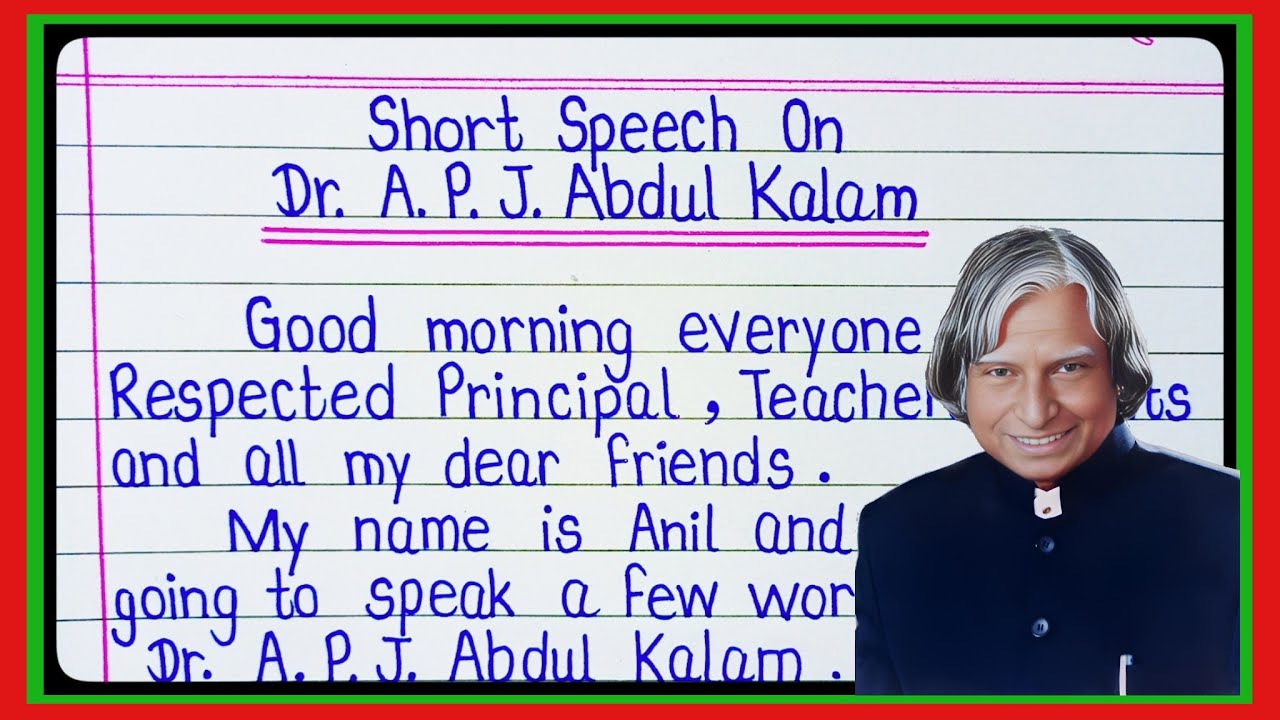 Short Speech On
Dr. A. P. J. Abdul Kalam
Good morning everyone
Respected Principal, 
and all my dear friends.
My name is Anil and
going to speak a few
Dr. A. P. J. Abdul Kalam.